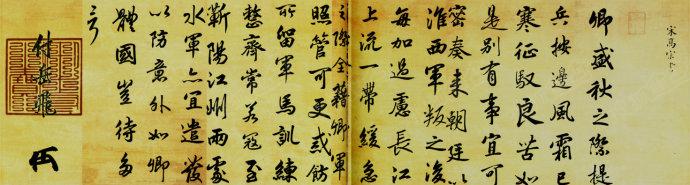 宋高宗書
卿盛秋之際提
兵按邊風霜已
寒征馭良苦如
是別有事宜可
密奏来朝廷以
淮西軍叛之後
每加過慮長江
上流一帶緩急
之際全藉卿軍
照管可更戒飭
所留軍馬訓練
整齊常若寇至
蘄陽江州兩處
水軍亦宜遣發
以防意外如卿
體國豈待多
言
付岳飛